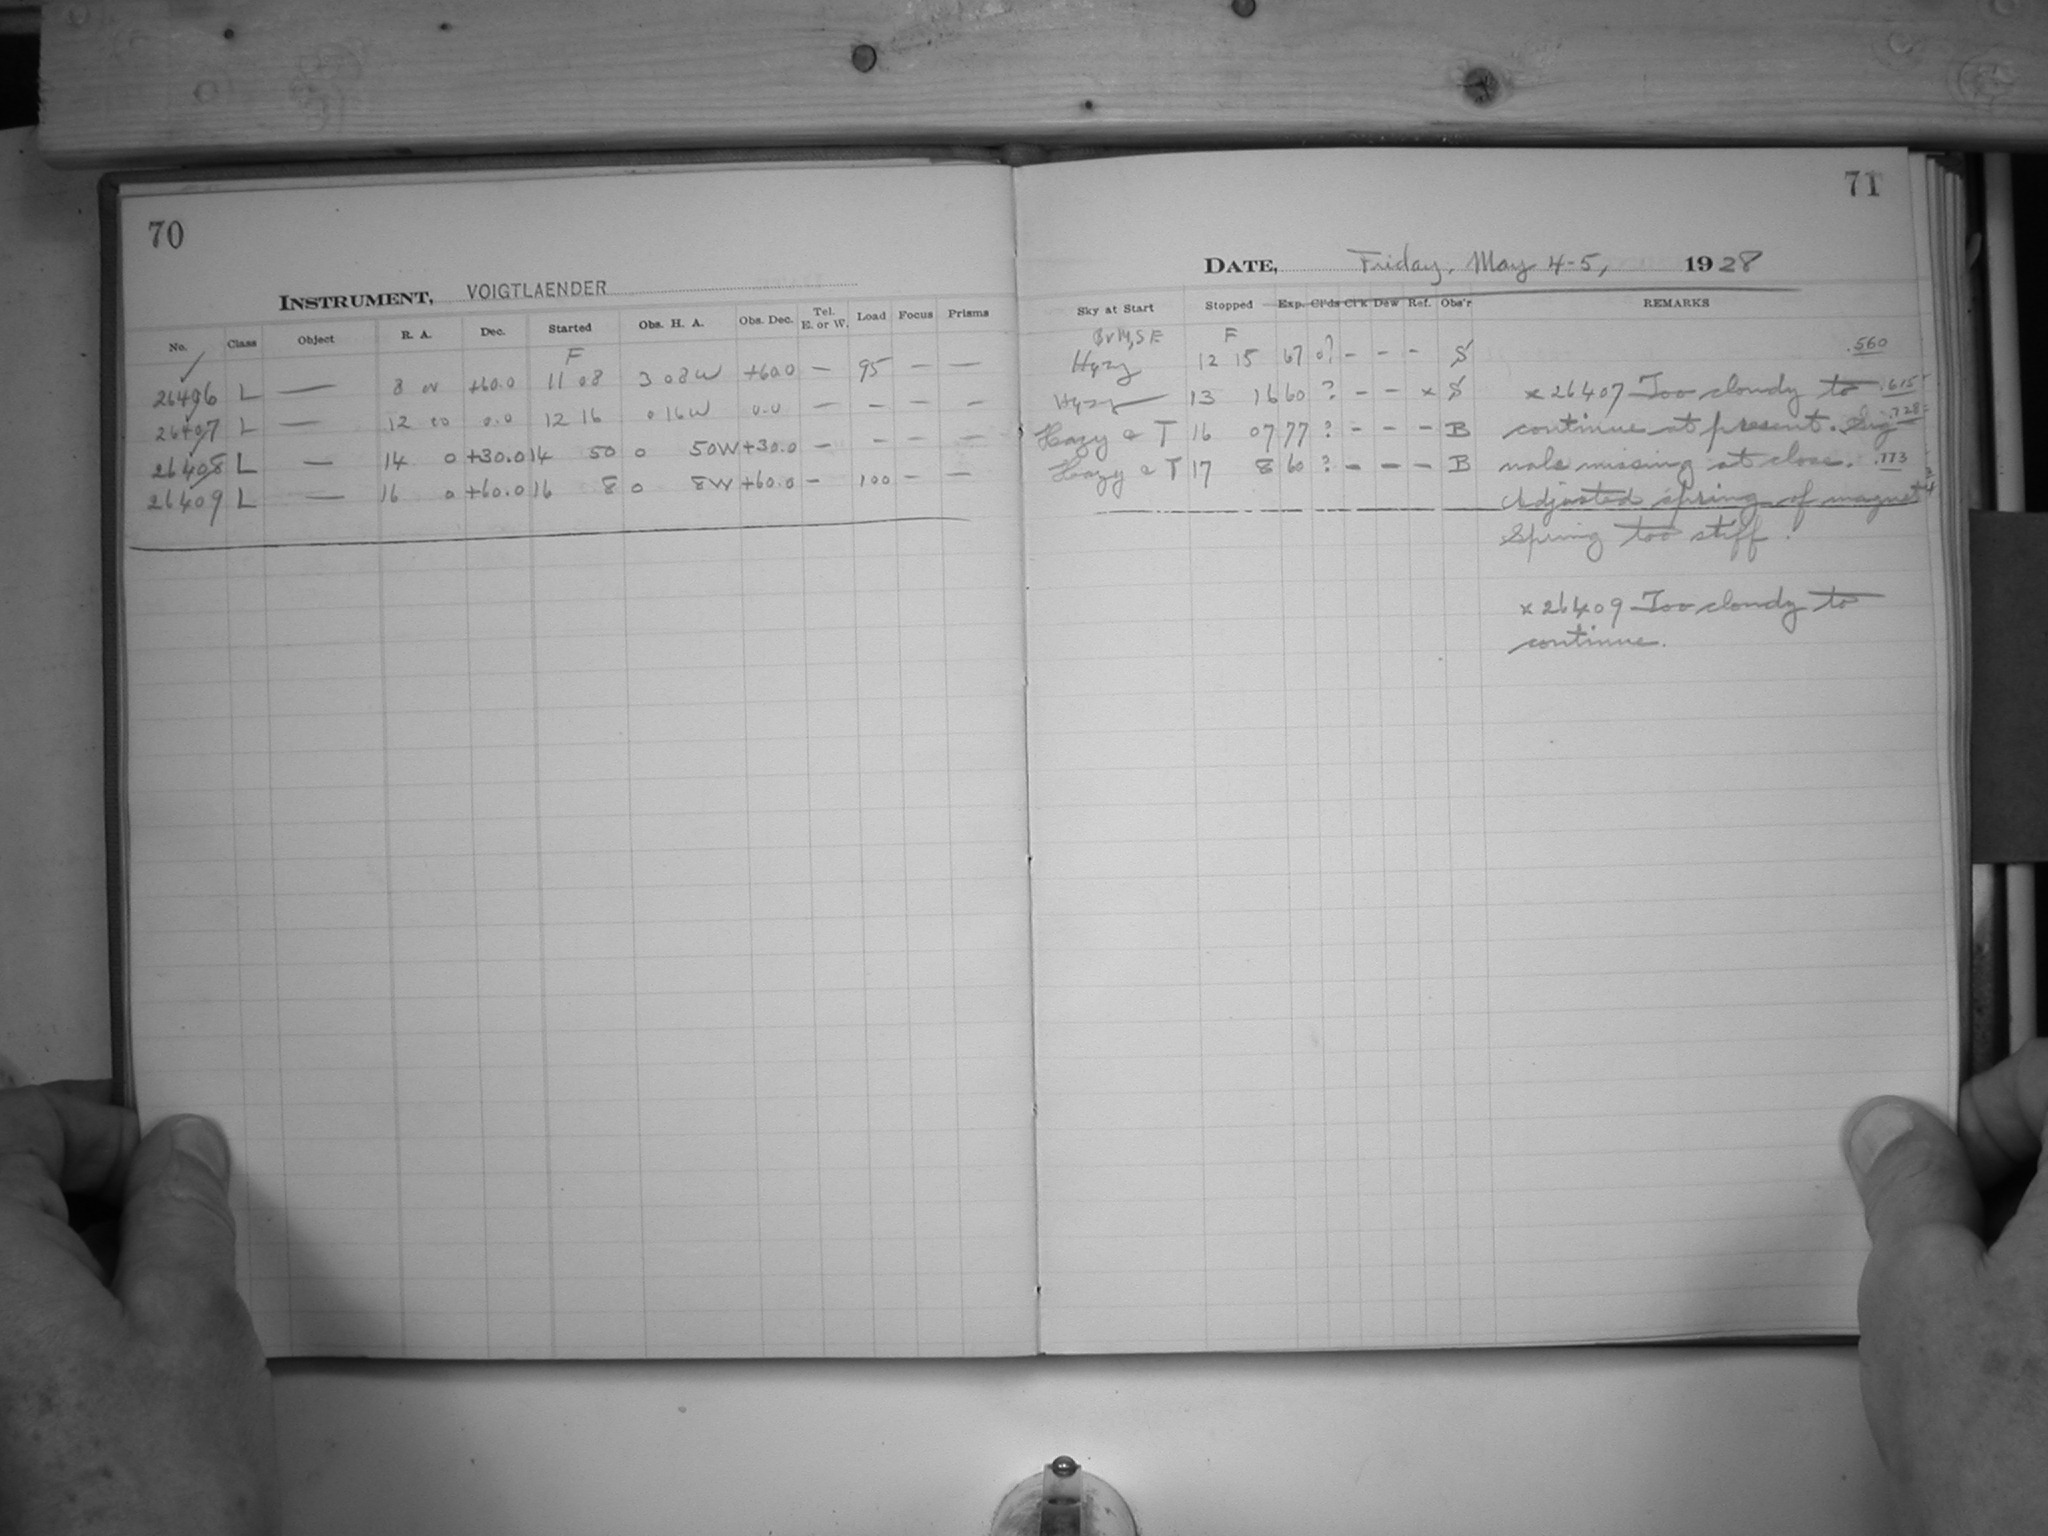 70
INSTRUMENT, VOIGTLAENDER
No. Class Object R. A. Dec. Started Obs. H. A. Obs. Dec. Tel. E. or W. Load Focus Prisms
F
26406 L — 8 00 +60.0 11 08 3 08W +60.0 — 95 — —
26407 L — 12 00 0.0 12 16 0 16W 0.0 — — — —
26408 L — 14 0 +30.0 14 50 0 50W +30.0 — — — —
26409 L — 16 0 +60.0 16 8 0 8W +60.0 — 100 — —
71
DATE, Friday, May 4-5, 1928
Sky at Start Stopped Exp. Cl'ds Cl'k Dew Ref. Obs'r REMARKS
F
Hazy 12 15 67 0? - - - S .560
Hazy 13 16 60 ? - - x S x 26407 Too cloudy to .615
Hazy & T 16 07 77 ? - - - B continue at present. Sig- .728
Hazy & T 17 8 60 ? - - - B nals missing at close. .773
Adjusted spring of magnet
Spring too stiff.
x 26409 Too cloudy to
continue.